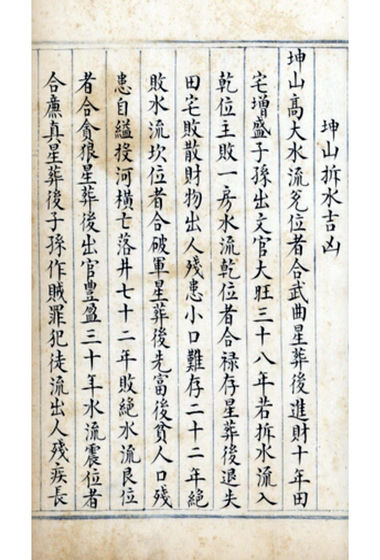 坤山拆水吉凶
坤山高大水流兊位者合武曲星葬後進財十年田
宅增盛子孫出文官大旺三十八年若拆水流入
乾位主敗一房水流乾位者合禄存星葬後退失
田宅敗散財物出人殘患小口難存二十二年絕
敗水流坎位者合破軍星葬後先富後貧人口殘
患自縊投河橫亡落井七十二年敗絕水流艮位
者合貪狼星葬後出官豐盈三十年水流震位者
合廉真星葬後子孫作賊罪犯徒流出人殘疾長